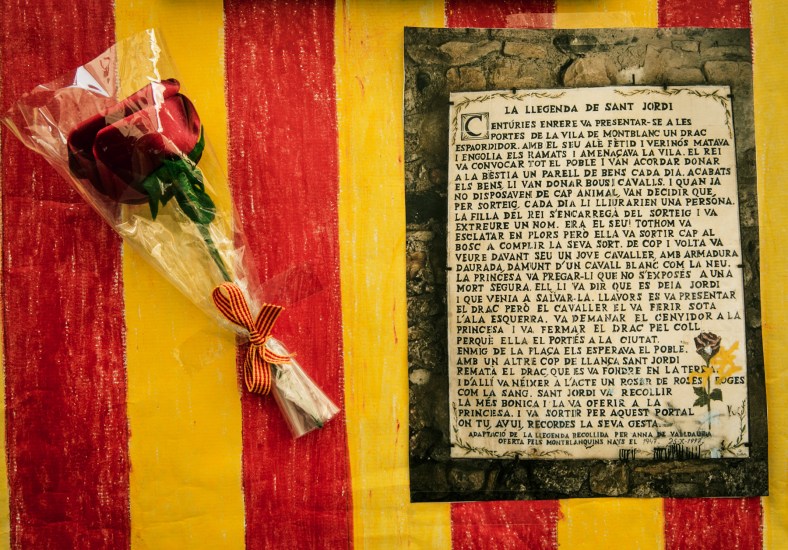 LA LLEGENDA DE SANT JORDI
CENTÚRIES ENRERE VA PRESENTAR-SE A LES
PORTES DE LA VILA DE MONTBLANC UN DRAC
ESPAORDIDOR. AMB EL SEU ALÈ FÈTID I VERINÓS MATAVA
I ENGOLIA ELS RAMATS I AMENAÇAVA LA VILA. EL REI
VA CONVOCAR TOT EL POBLE I VAN ACORDAR DONAR
A LA BÈSTIA UN PARELL DE BENS CADA DIA. ACABATS
ELS BENS, LI VAN DONAR BOUS I CAVALLS. I QUAN JA
NO DISPOSAVEN DE CAP ANIMAL, VAN DECIDIR QUE,
PER SORTEIG, CADA DIA LI LLIURARIEN UNA PERSONA.
LA FILLA DEL REI S'ENCARREGA DEL SORTEIG I VA
EXTREURE UN NOM. ERA EL SEU! TOTHOM VA
ESCLATAR EN PLORS PERÒ ELLA VA SORTIR CAP AL
BOSC A COMPLIR LA SEVA SORT. DE COP I VOLTA VA
VEURE DAVANT SEU UN JOVE CAVALLER, AMB ARMADURA
DAURADA, DAMUNT D'UN CAVALL BLANC COM LA NEU.
LA PRINCESA VA PREGAR-LI QUE NO S'EXPOSÉS A UNA
MORT SEGURA. ELL LI VA DIR QUE ES DEIA JORDI
I QUE VENIA A SALVAR-LA. LLAVORS ES VA PRESENTAR
EL DRAC PERÒ EL CAVALLER EL VA FERIR SOTA
L'ALA ESQUERRA. VA DEMANAR EL CENYIDOR A LA
PRINCESA I VA FERMAR EL DRAC PEL COLL
PERQUÈ ELLA EL PORTÉS A LA CIUTAT.
ENMIG DE LA PLAÇA ELS ESPERAVA EL POBLE.
AMB UN ALTRE COP DE LLANÇA SANT JORDI
REMATÀ EL DRAC, QUE ES VA FONDRE EN LA TERRA.
I D'ALLÍ VA NÉIXER A L'ACTE UN ROSER DE ROSES ROGES
COM LA SANG. SANT JORDI VA RECOLLIR
LA MÉS BONICA I LA VA OFERIR A LA
PRINCESA. I VA SORTIR PER AQUEST PORTAL
ON TU, AVUI, RECORDES LA SEVA GESTA.
ADAPTACIÓ DE LA LLEGENDA RECOLLIDA PER ANNA DE VALLDAURA
OFERTA PELS MONTBLANQUINS NATS EL 1947